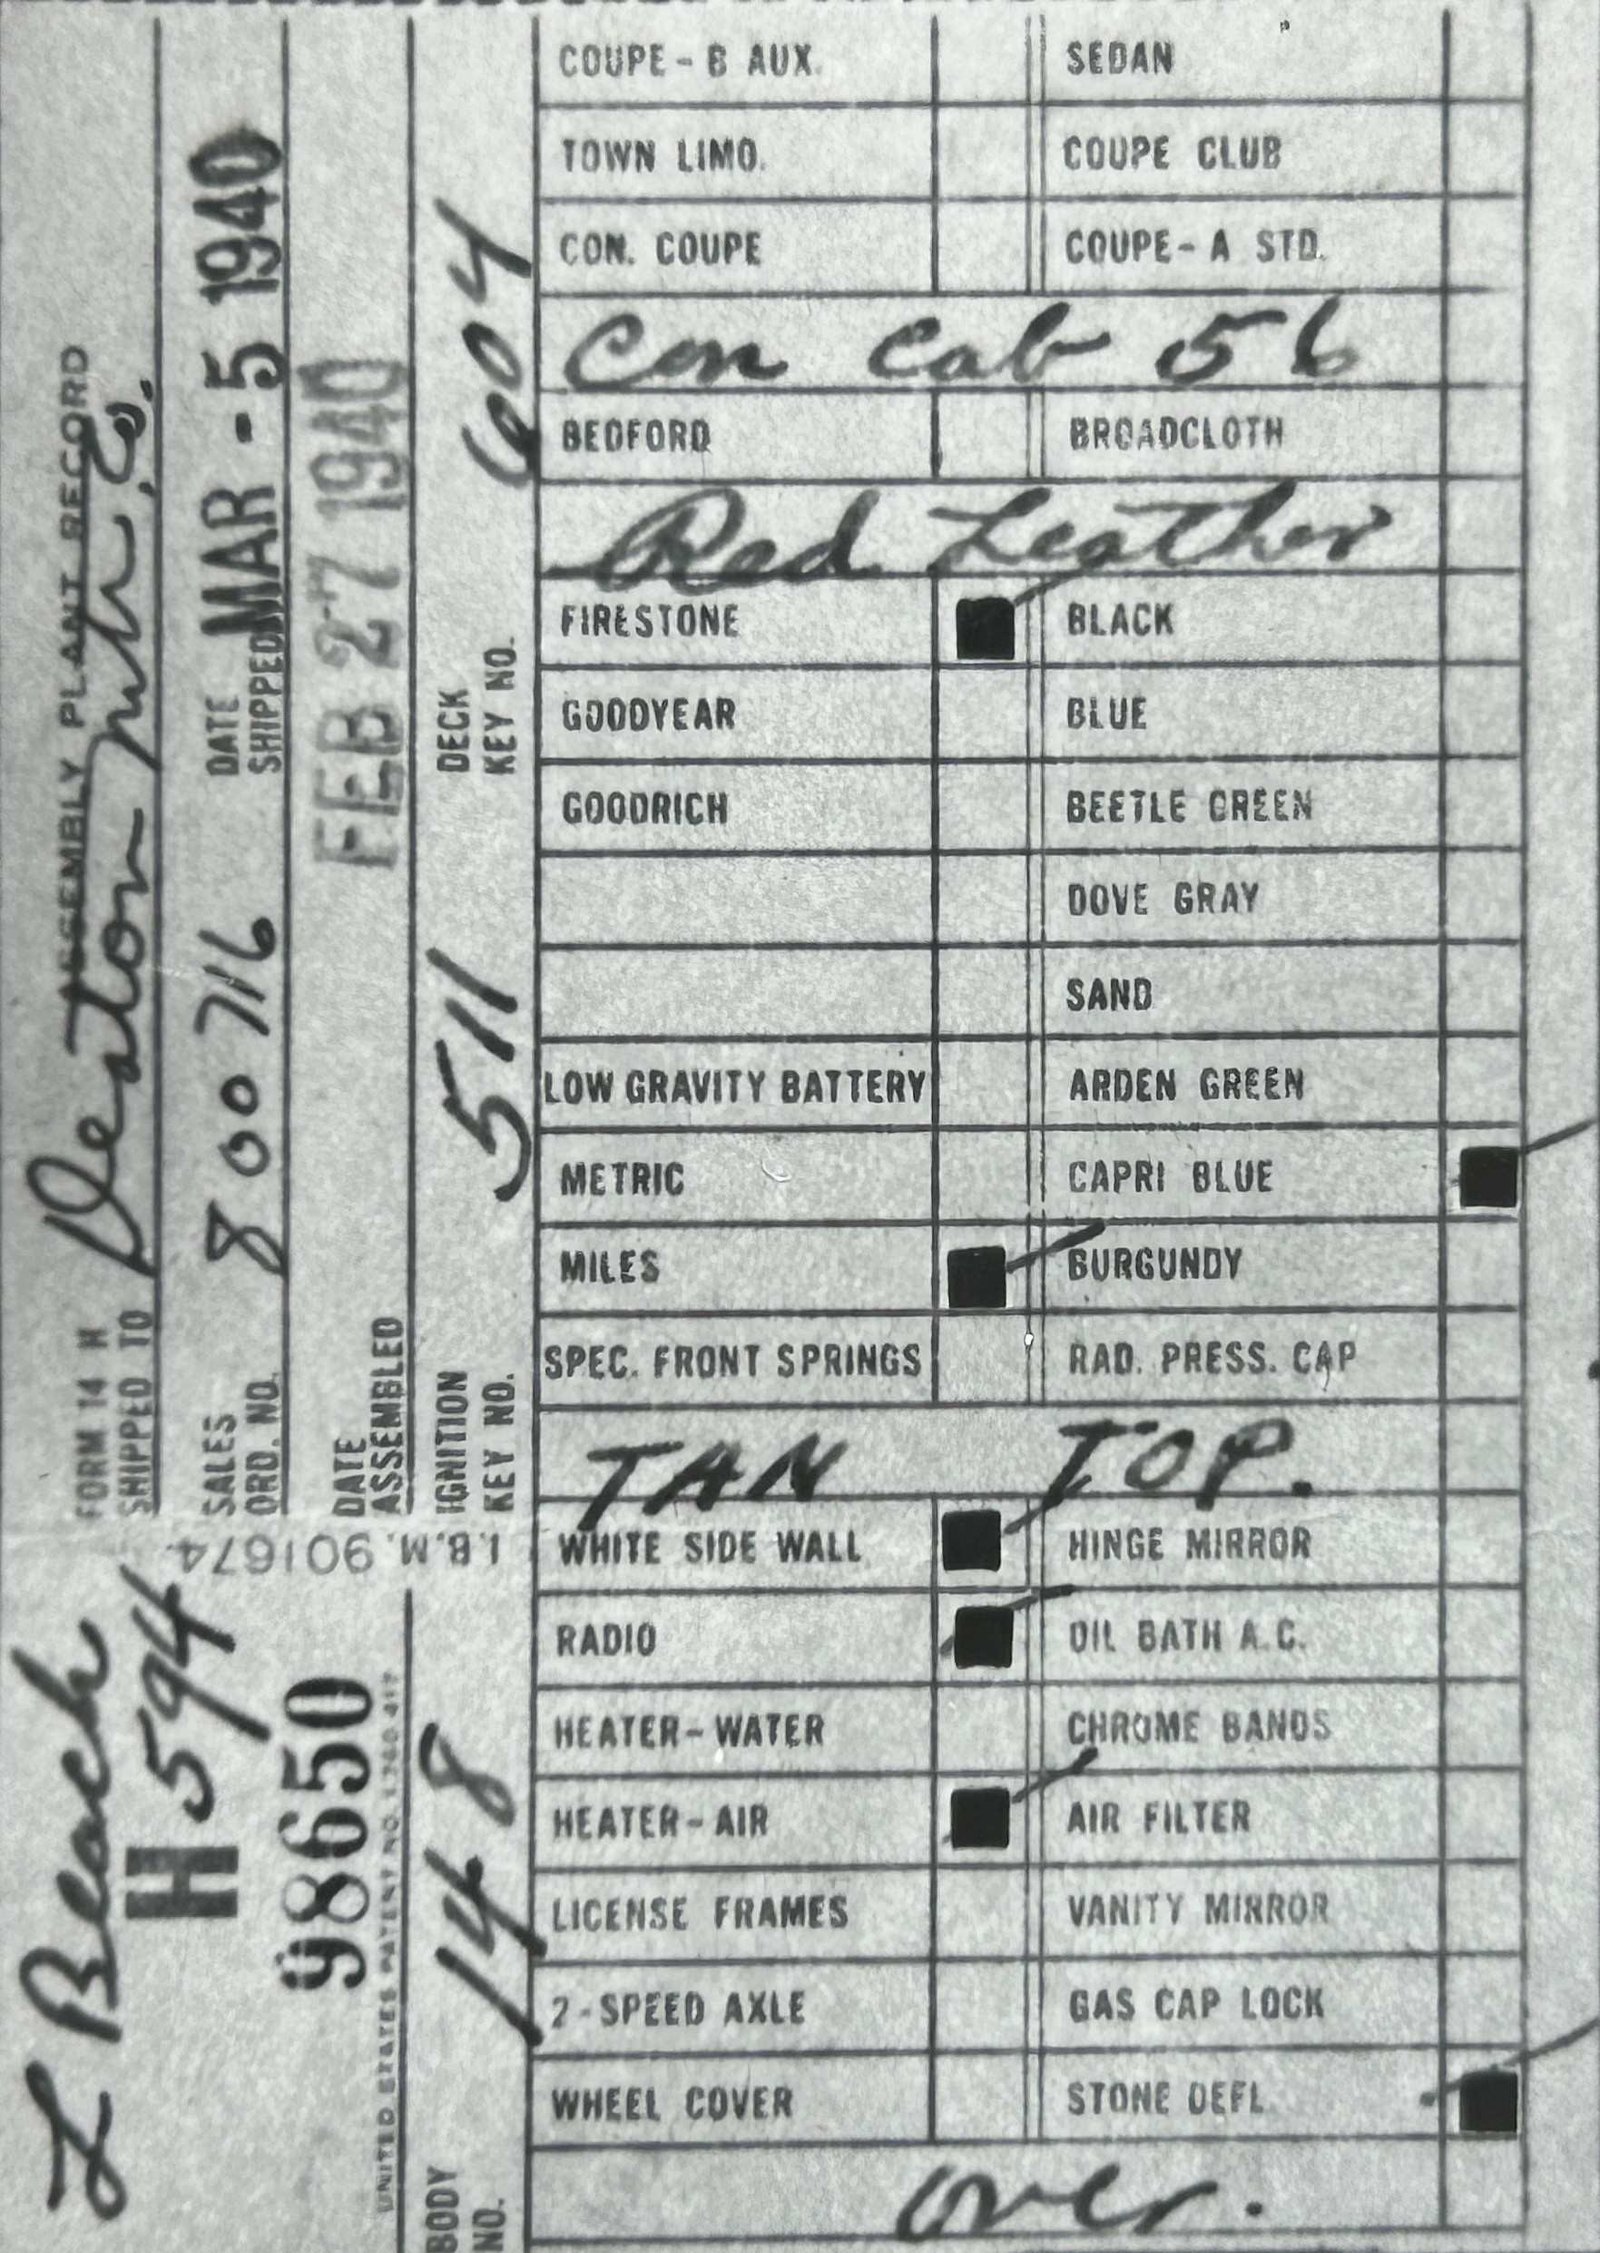 FORM 14 H ASSEMBLY PLANT RECORD
SHIPPED TO
SALES ORD. NO. 800716 DATE SHIPPED MAR - 5 1940
DATE ASSEMBLED FEB 27 1940
IGNITION KEY NO. 511 DECK KEY NO. 604
L Beach
H 594
98650
I.B.M. 901674
UNITED STATES PATENT NO.
BODY NO. 148
COUPE - B AUX. SEDAN
TOWN LIMO. COUPE CLUB
CON. COUPE COUPE - A STD.
Con Cab 56
BEDFORD BROADCLOTH
Red Leather
FIRESTONE BLACK
GOODYEAR BLUE
GOODRICH BEETLE GREEN
DOVE GRAY
SAND
LOW GRAVITY BATTERY ARDEN GREEN
METRIC CAPRI BLUE
MILES BURGUNDY
SPEC. FRONT SPRINGS RAD. PRESS. CAP
TAN TOP.
WHITE SIDE WALL HINGE MIRROR
RADIO OIL BATH A.C.
HEATER - WATER CHROME BANDS
HEATER - AIR AIR FILTER
LICENSE FRAMES VANITY MIRROR
2 - SPEED AXLE GAS CAP LOCK
WHEEL COVER STONE DEFL.
over.